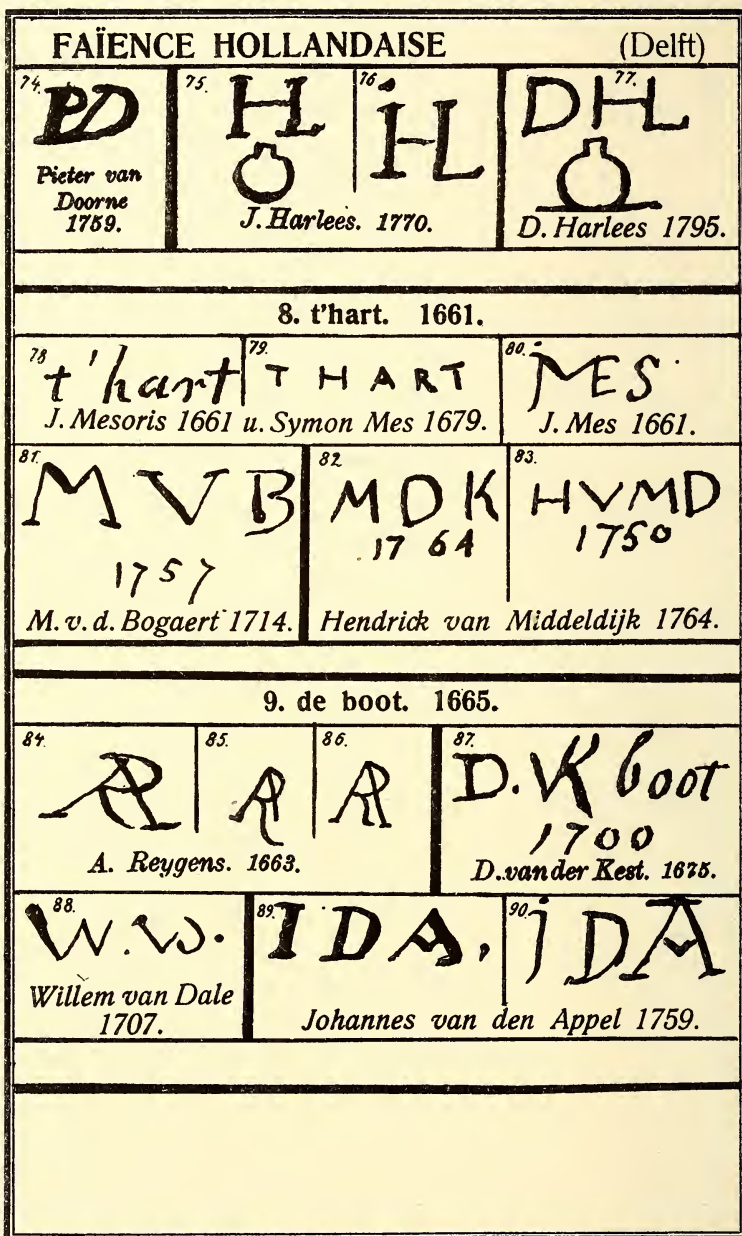 FAÏENCE HOLLANDAISE (Delft)
74. PD
Pieter van
Doorne
1759.
75. HL
76. iHL
J. Harlees. 1770.
77. DHL
D. Harlees 1795.
8. t'hart. 1661.
78 t'hart
79. T HART
J. Mesoris 1661 u. Symon Mes 1679.
80. iMES
J. Mes 1661.
81. M V B
1757
M. v. d. Bogaert 1714.
82 M D K
1764
83. HVMD
1750
Hendrick van Middeldijk 1764.
9. de boot. 1665.
84. AR
85. AR
86. AR
A. Reygens. 1663.
87. D. VK boot
1700
D. van der Kest. 1675.
88. W. W.
Willem van Dale
1707.
89. I D A,
90. i D A
Johannes van den Appel 1759.